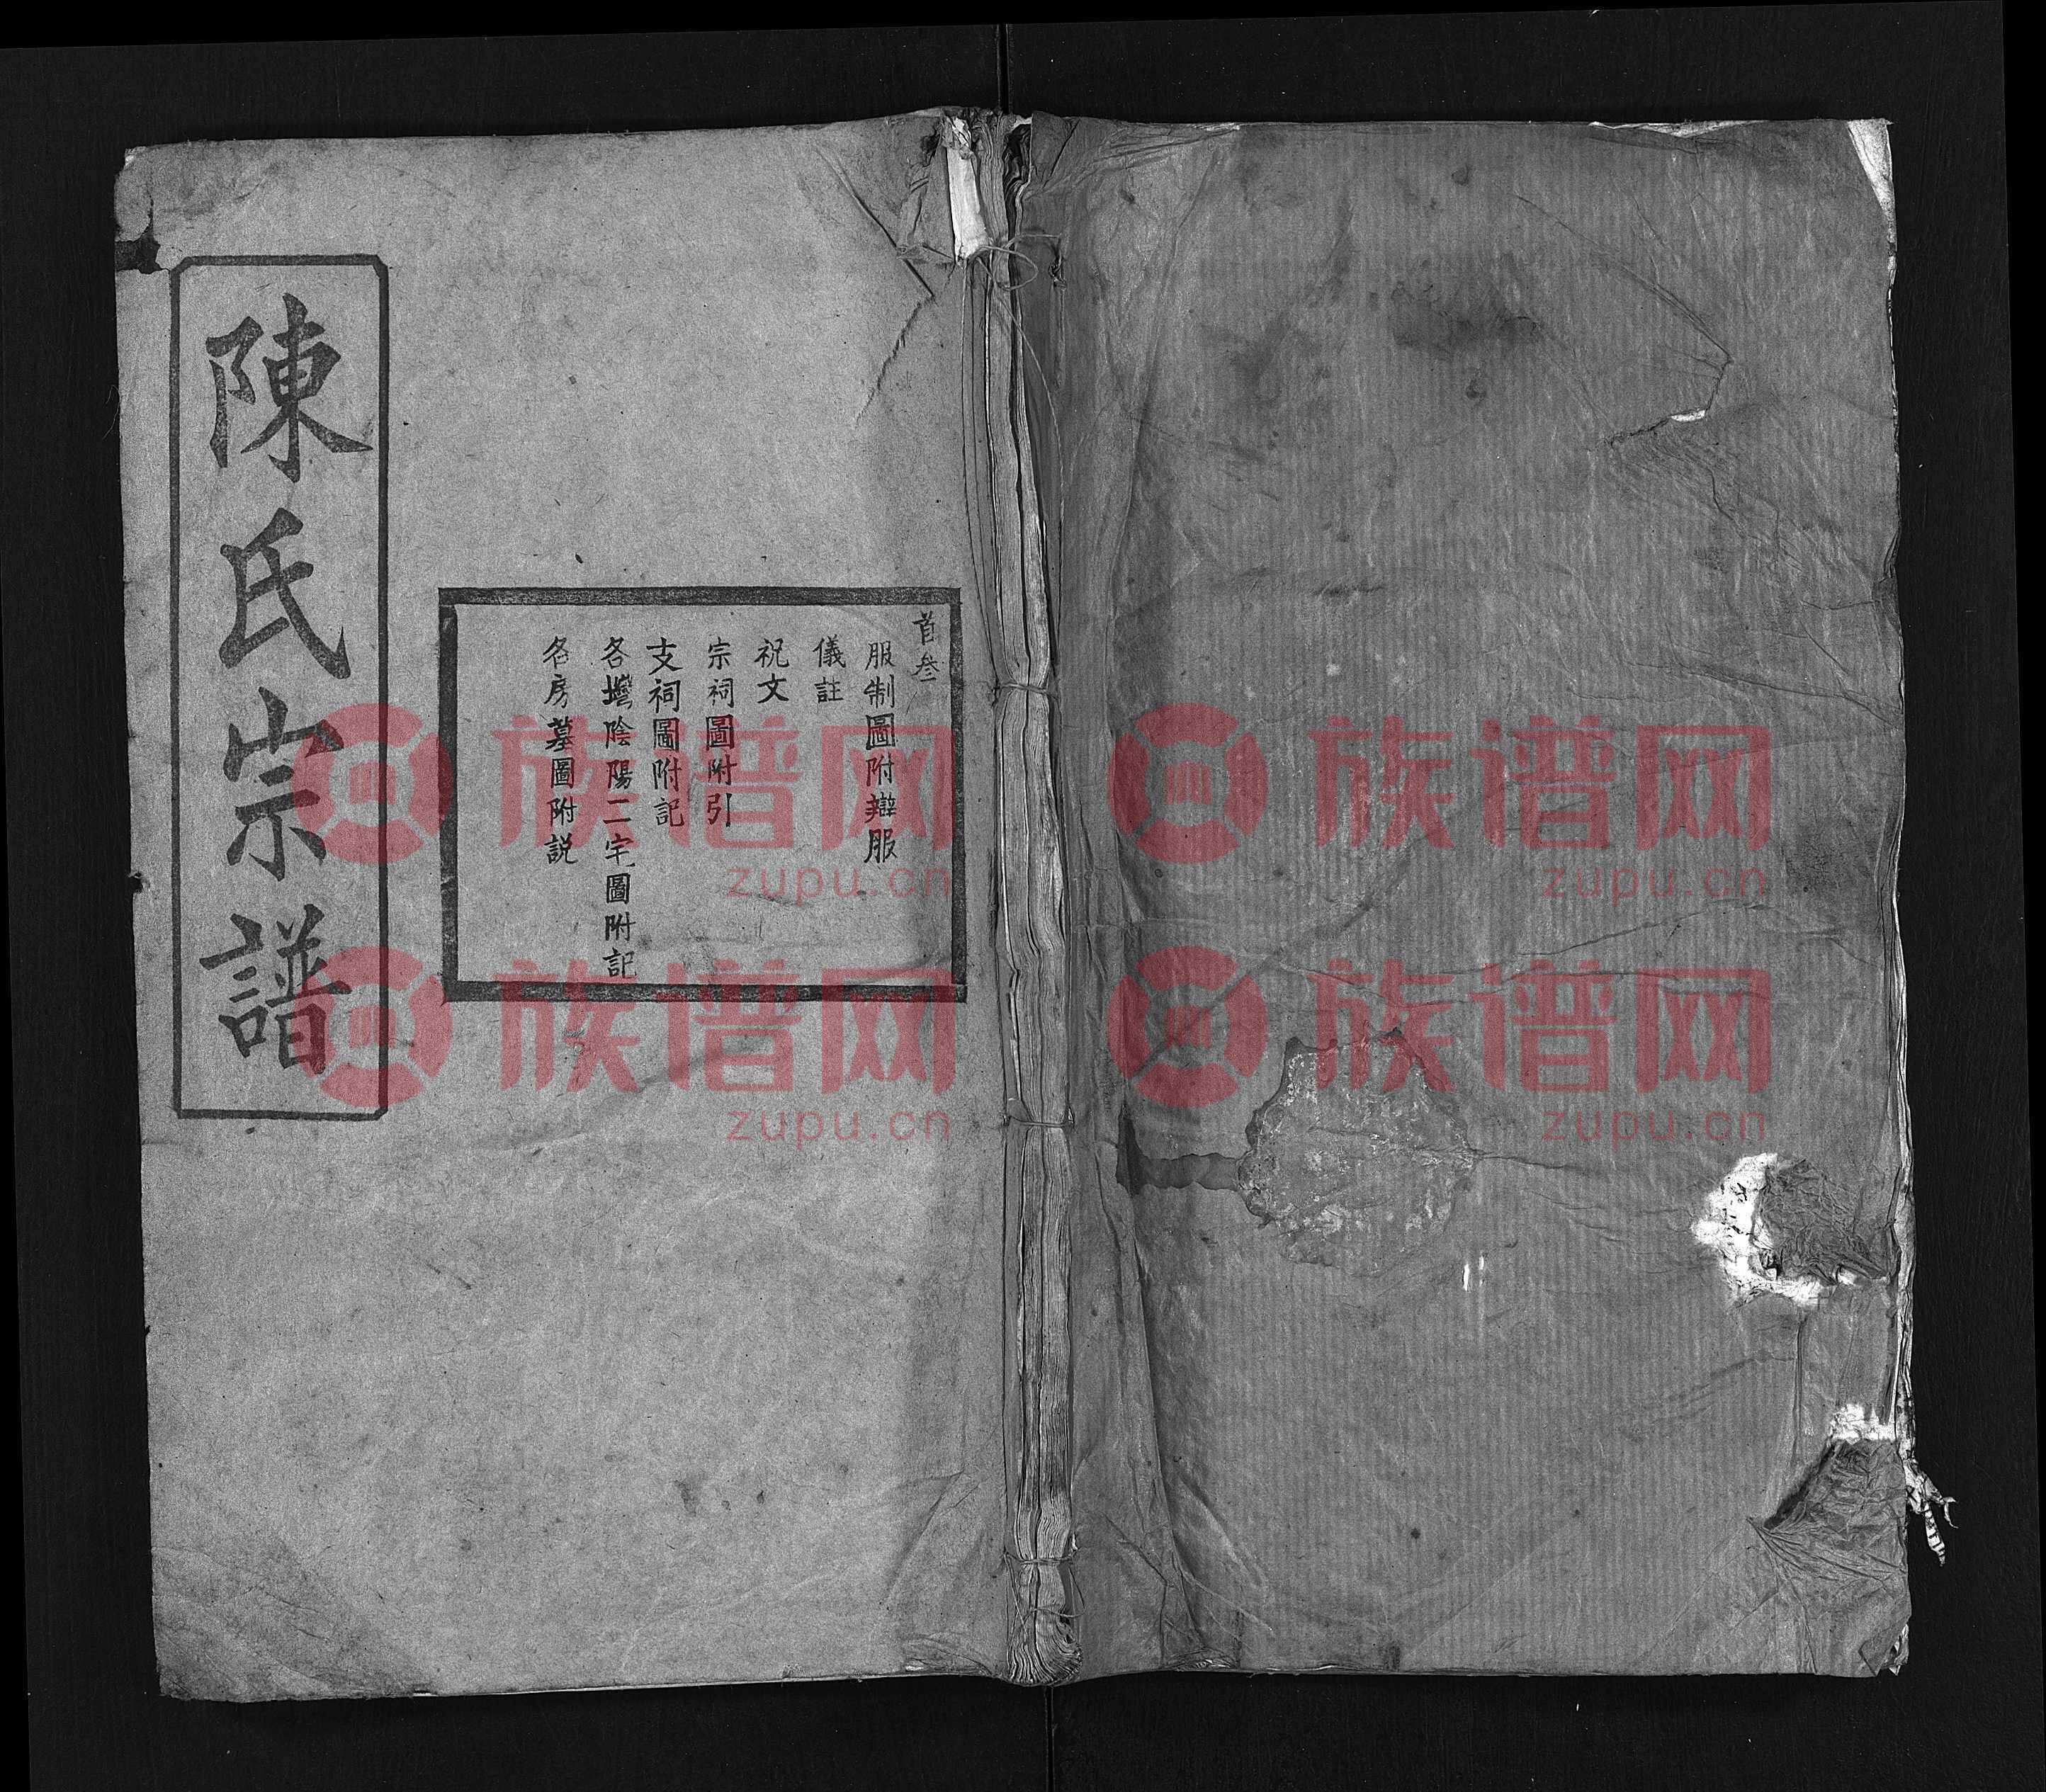 陳氏宗譜
首叄
服制圖附辯服
儀註
祝文
宗祠圖附引
支祠圖附記
各塆陰陽二宅圖附記
各房墓圖附説
族谱网
zupu.cn
族谱网
zupu.cn
族谱网
zupu.cn
族谱网
zupu.cn